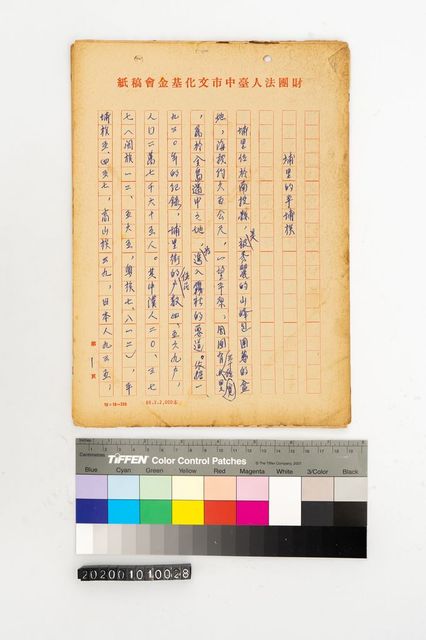 財團法人臺中市文化基金會稿紙
埔里的平埔族
埔里位於南投縣，是被秀麗的山峰包圍著的盆
地，海拔約六百公尺，一望平原，周圍有
，為於全島道中之地，為進入霧社的要道。依據一
九三〇年的紀錄，埔里街的戶數四、五六九戶，
住民
人口二萬七千六十五人。其中漢人二〇、三七
七八閩族一二、五六五，粵族七、八一二），平
埔族五、四五七，高山族五九，日本人九三五，
第 1 頁
68.1.2,000本
TIFFEN Color Control Patches
© The Tiffen Company, 2007
Centimetres
Blue Cyan Green Yellow Red Magenta White 3/Color Black
202001010028